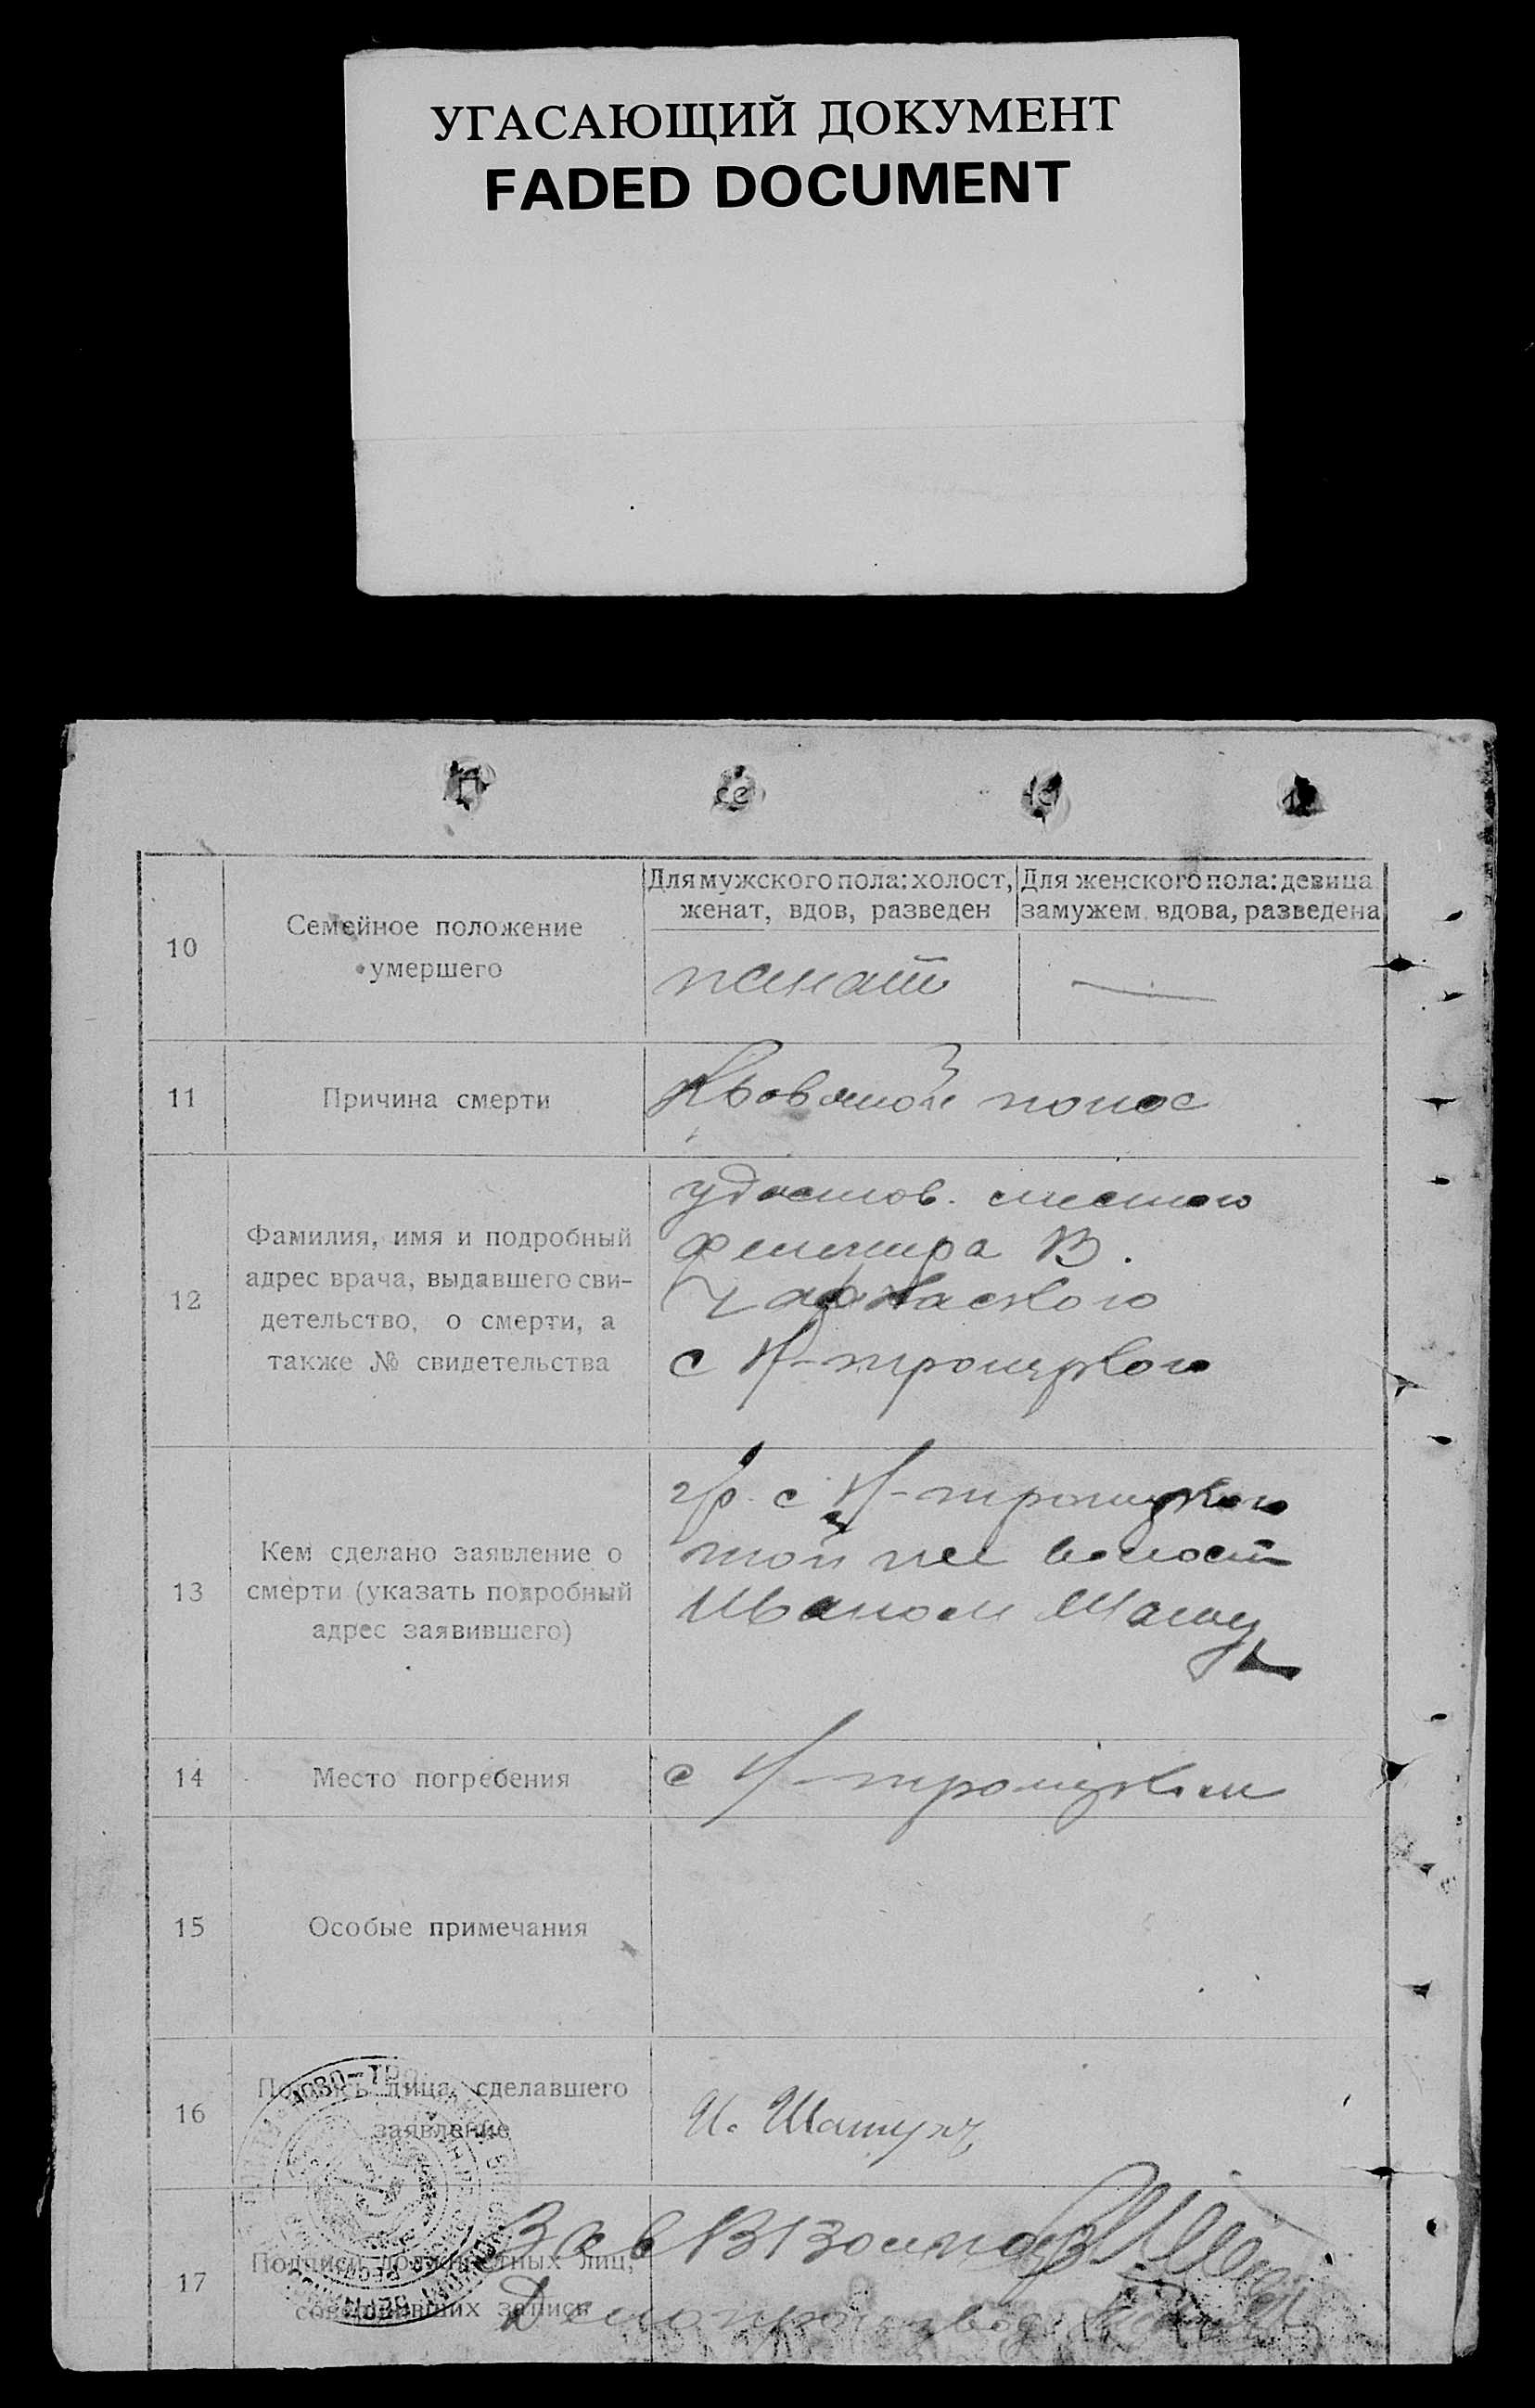 УГАСАЮЩИЙ ДОКУМЕНТ
FADED DOCUMENT
10
Семейное положение
умершего
Для мужского пола: холост,
женат, вдов, разведен
Для женского пола: девица
замужем, вдова, разведена
женат
—
11
Причина смерти
Кровяной понос
12
Фамилия, имя и подробный
адрес врача, выдавшего сви-
детельство, о смерти, а
также № свидетельства
удостов. местного
фельшера В.
с Н-троицкого
13
Кем сделано заявление о
смерти (указать подробный
адрес заявившего)
гр. с Н-троицкого
той же волости
Иваном
14
Место погребения
с Н-троицком
15
Особые примечания
16
Подпись лица, сделавшего
заявление
И. Шашук
17
Подписи должностных лиц,
совершивших запись
Зав В Волзаг
Делопроизвод.